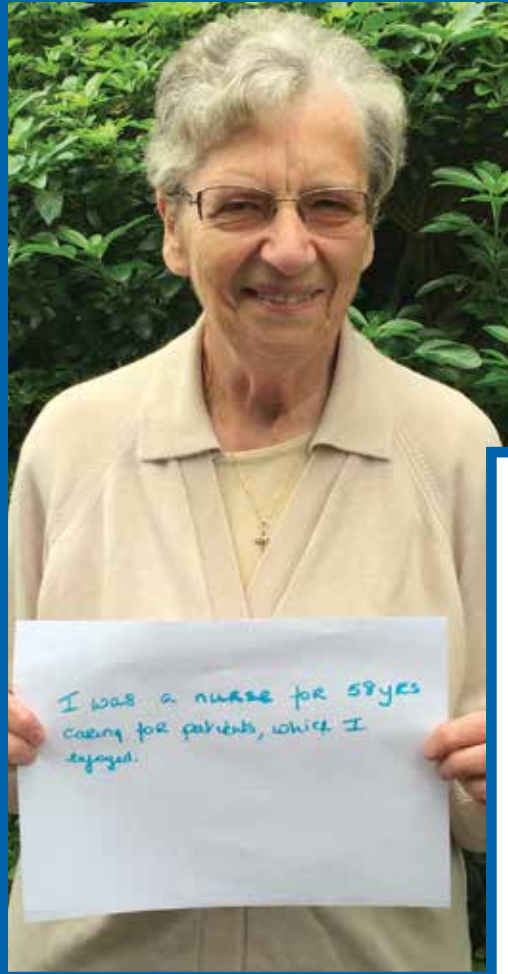 I was a nurse for 58yrs
caring for patients, which I
enjoyed.